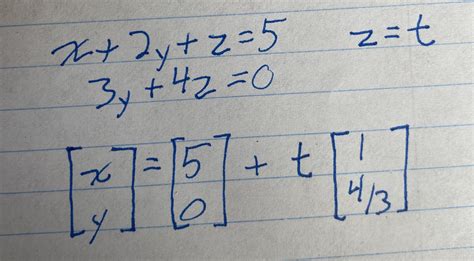 x+2y+z=5 z=t
3y+4z=0
[x y] = [5 0] + t [1 4/3]